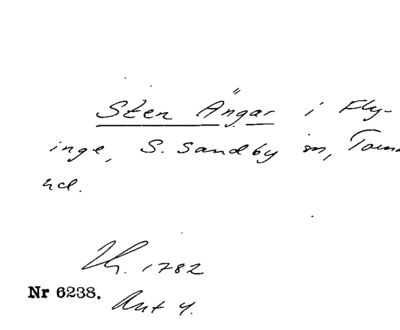 Sten Ängar i Fly-
inge, S. Sandby sn, Torna
hd.
Th. 1782
Nr 6238. Ant 4.